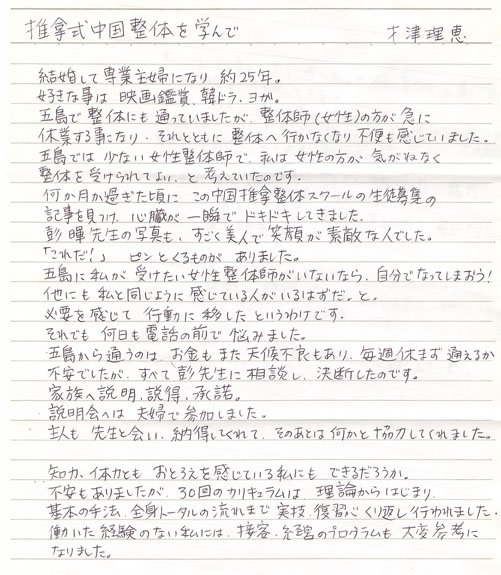 推拿式中国整体を学んで 才津理恵
結婚して専業主婦になり 約25年。
好きな事は 映画鑑賞、韓ドラ、ヨガ。
五島で整体にも通っていましたが、整体師(女性)の方が急に
休業する事になり、それとともに整体へ行かなくなり不便も感じていました。
五島では少ない女性整体師で、私は女性の方が、気がねなく
整体を受けられてよい、と考えていたのです。
何か月か過ぎた頃に この中国推拿整体スクールの生徒募集の
記事を見つけ、心臓が一瞬でドキドキしてきました。
彭暉先生の写真も、すごく美人で笑顔が素敵な人でした。
「これだ!」 ピンとくるものが ありました。
五島に私が受けたい女性整体師がいないなら、自分でなってしまおう!
他にも私と同じように感じている人がいるはずだ。と。
必要を感じて 行動に移した というわけです。
それでも 何日も電話の前で悩みました。
五島から通うのは、お金もまた天候不良もあり、毎週休まず通えるか
不安でしたが、すべて彭先生に相談し、決断したのです。
家族へ説明、説得、承諾。
説明会へは 夫婦で参加しました。
主人も 先生と会い、納得してくれて、そのあとは何かと協力してくれました。
知力、体力とも おとろえを感じている私にも できるだろうか。
不安もありましたが、30回のカリキュラムは、理論からはじまり、
基本の手法、全身トータルの流れまで 実技、復習をくり返し行われました。
働いた経験のない私には、接客、経営のプログラムも 大変参考に
なりました。